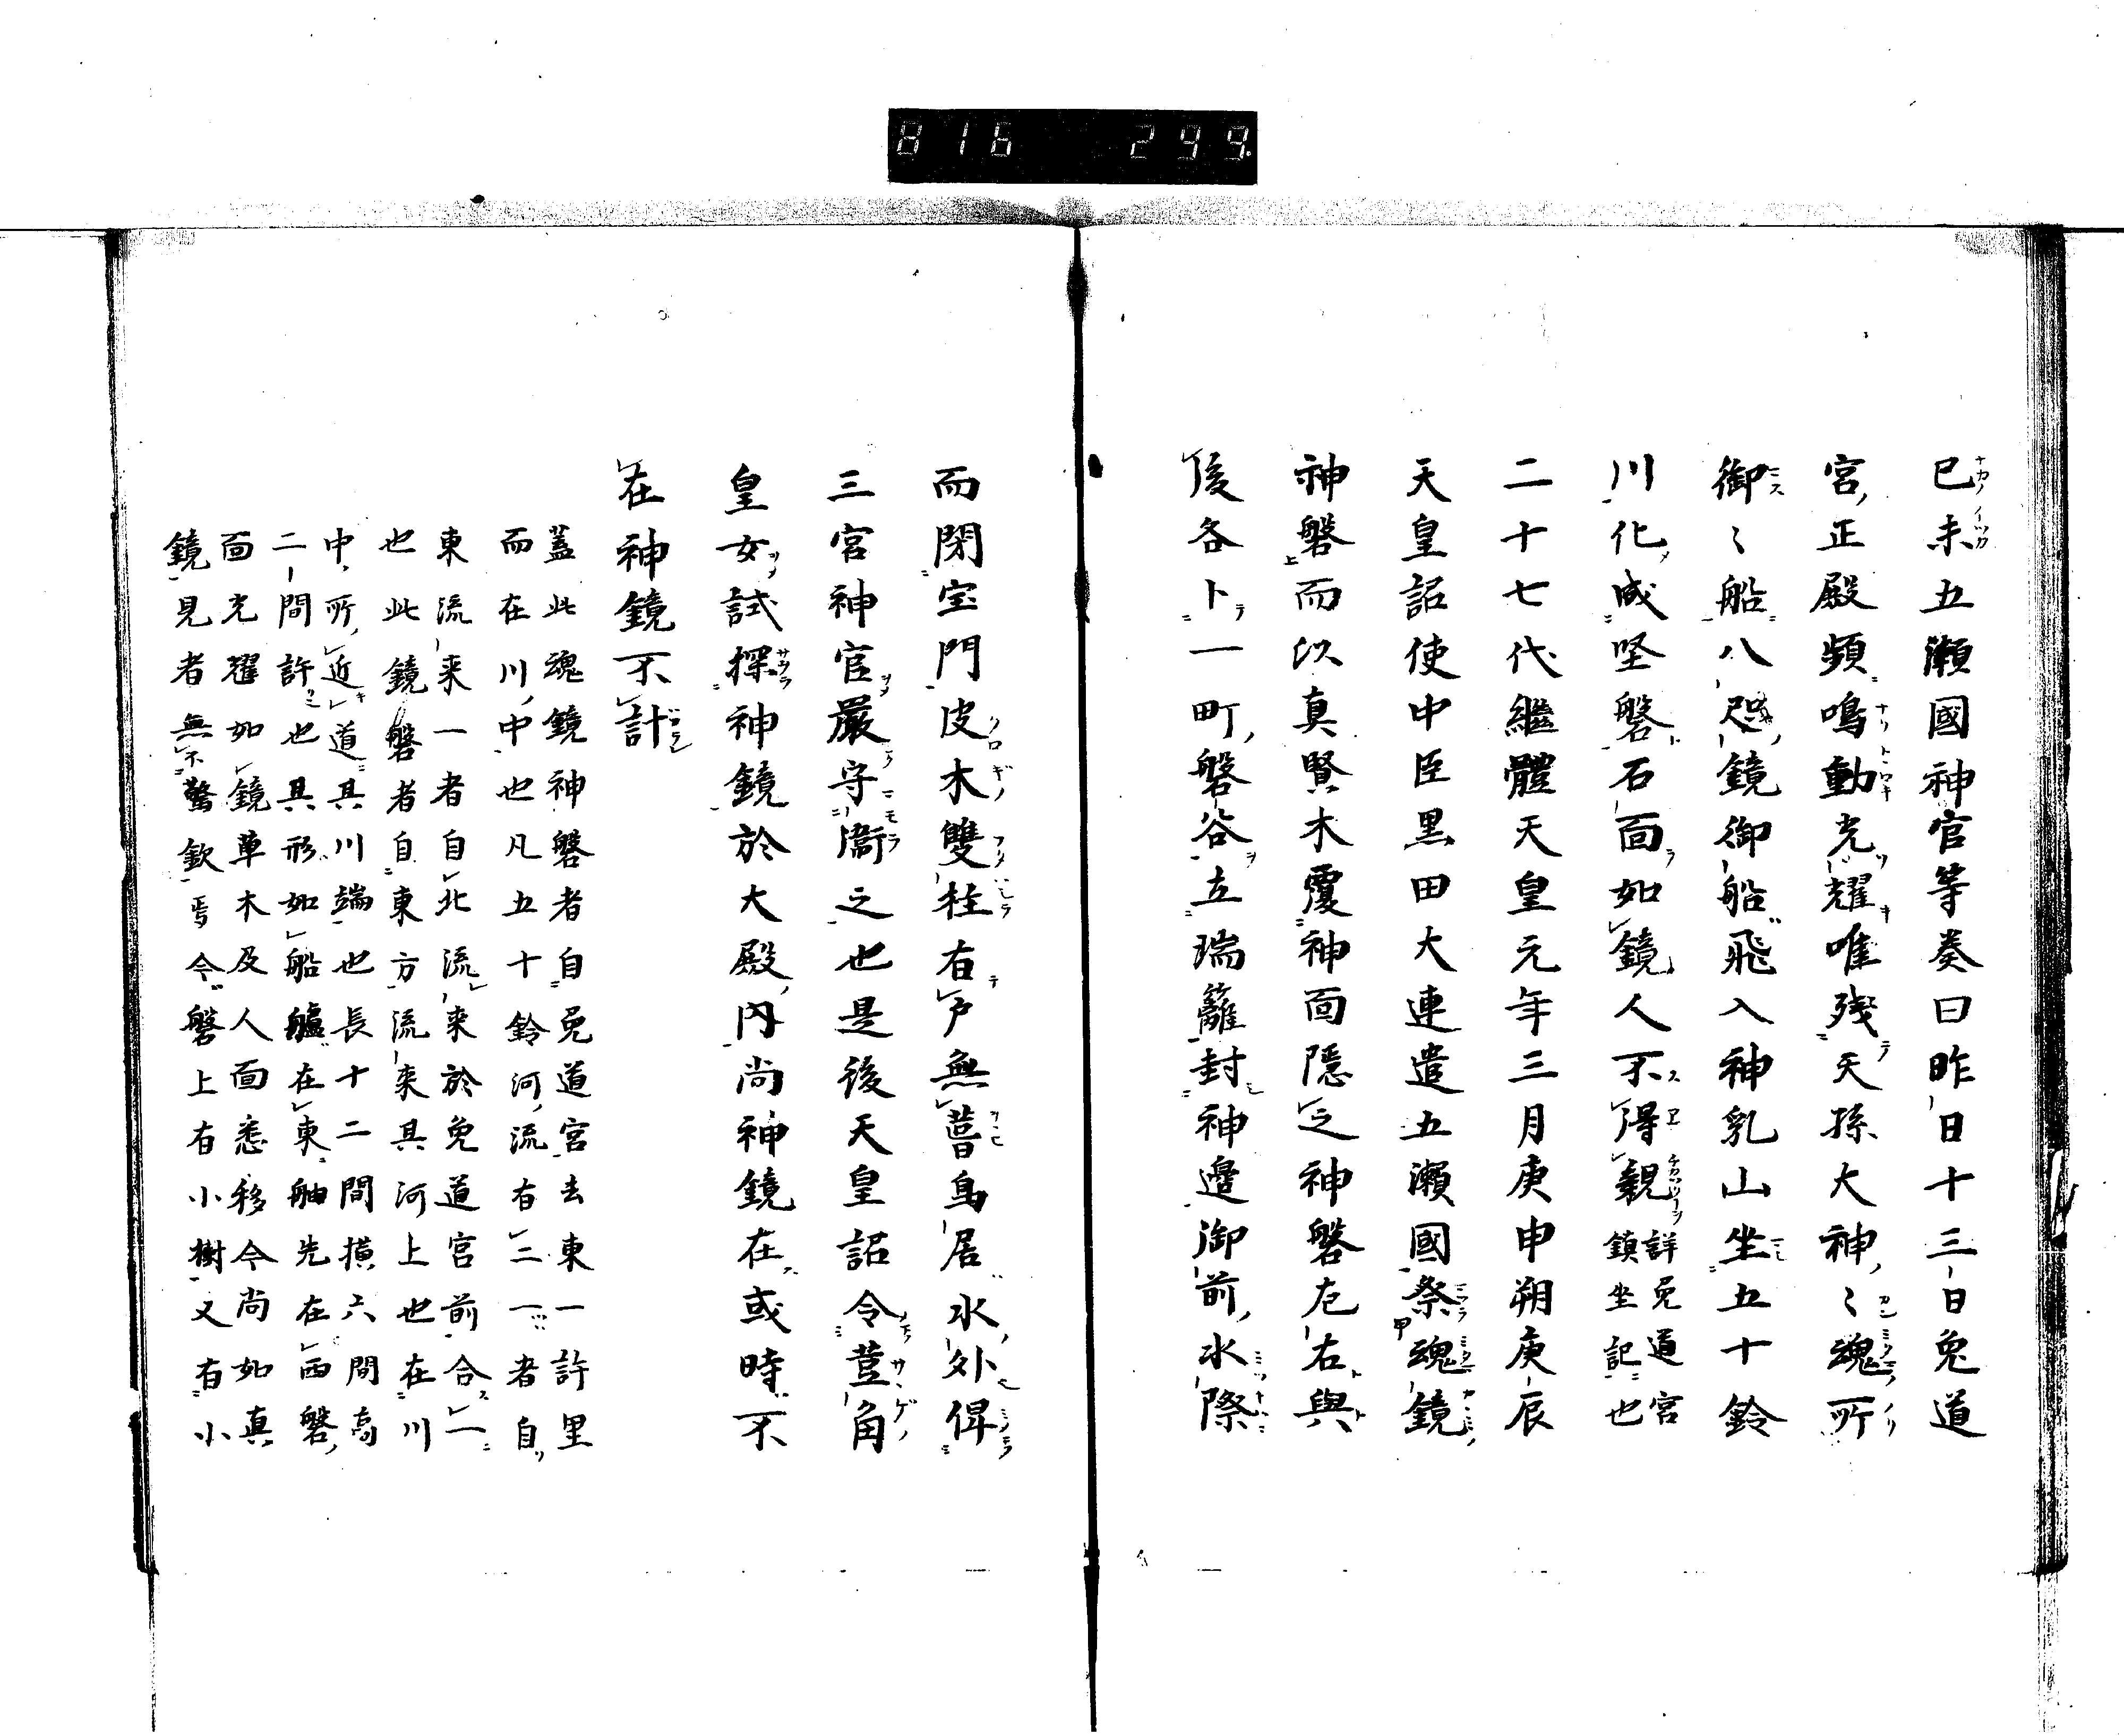 816 299.
已未五瀬國神官等奏曰昨日十三日兔道
宮正殿頻鳴動光耀唯殘天孫大神〻魂所
御〻船八咫鏡御船飛入神乳山坐五十鈴
川化成坚磐石面如鏡人不得親詳兔道宮
鎮坐記也
二十七代繼體天皇元年三月庚申朔庚辰
天皇詔使中臣黒田大連遣五瀬國祭魂鏡
神磐而以真賢木覆神面隱之神磐左右與
後各卜一町磐谷立瑞籬封神邉御前水際
而閇宝門皮木雙柱有戸無葺鳥居水外俾
三宮神官嚴守衞之也是後天皇詔令荳角
皇女試探神鏡於大殿内尚神鏡在或時不
在神鏡不計
蓋此魂鏡神磐者自兔道宮去東一許里
而在川中也凡五十鈴河流有二一者自
東流来一者自北流来於兔道宮前合一
也此鏡磐者自東方流来其河上也在川
中所近道其川端也長十二間横六間高
二間許也其形如船艫在東舳先在西磐
面光耀如鏡草木及人面悉移今尚如真
鏡見者無不驚欽焉今磐上有小樹又有小